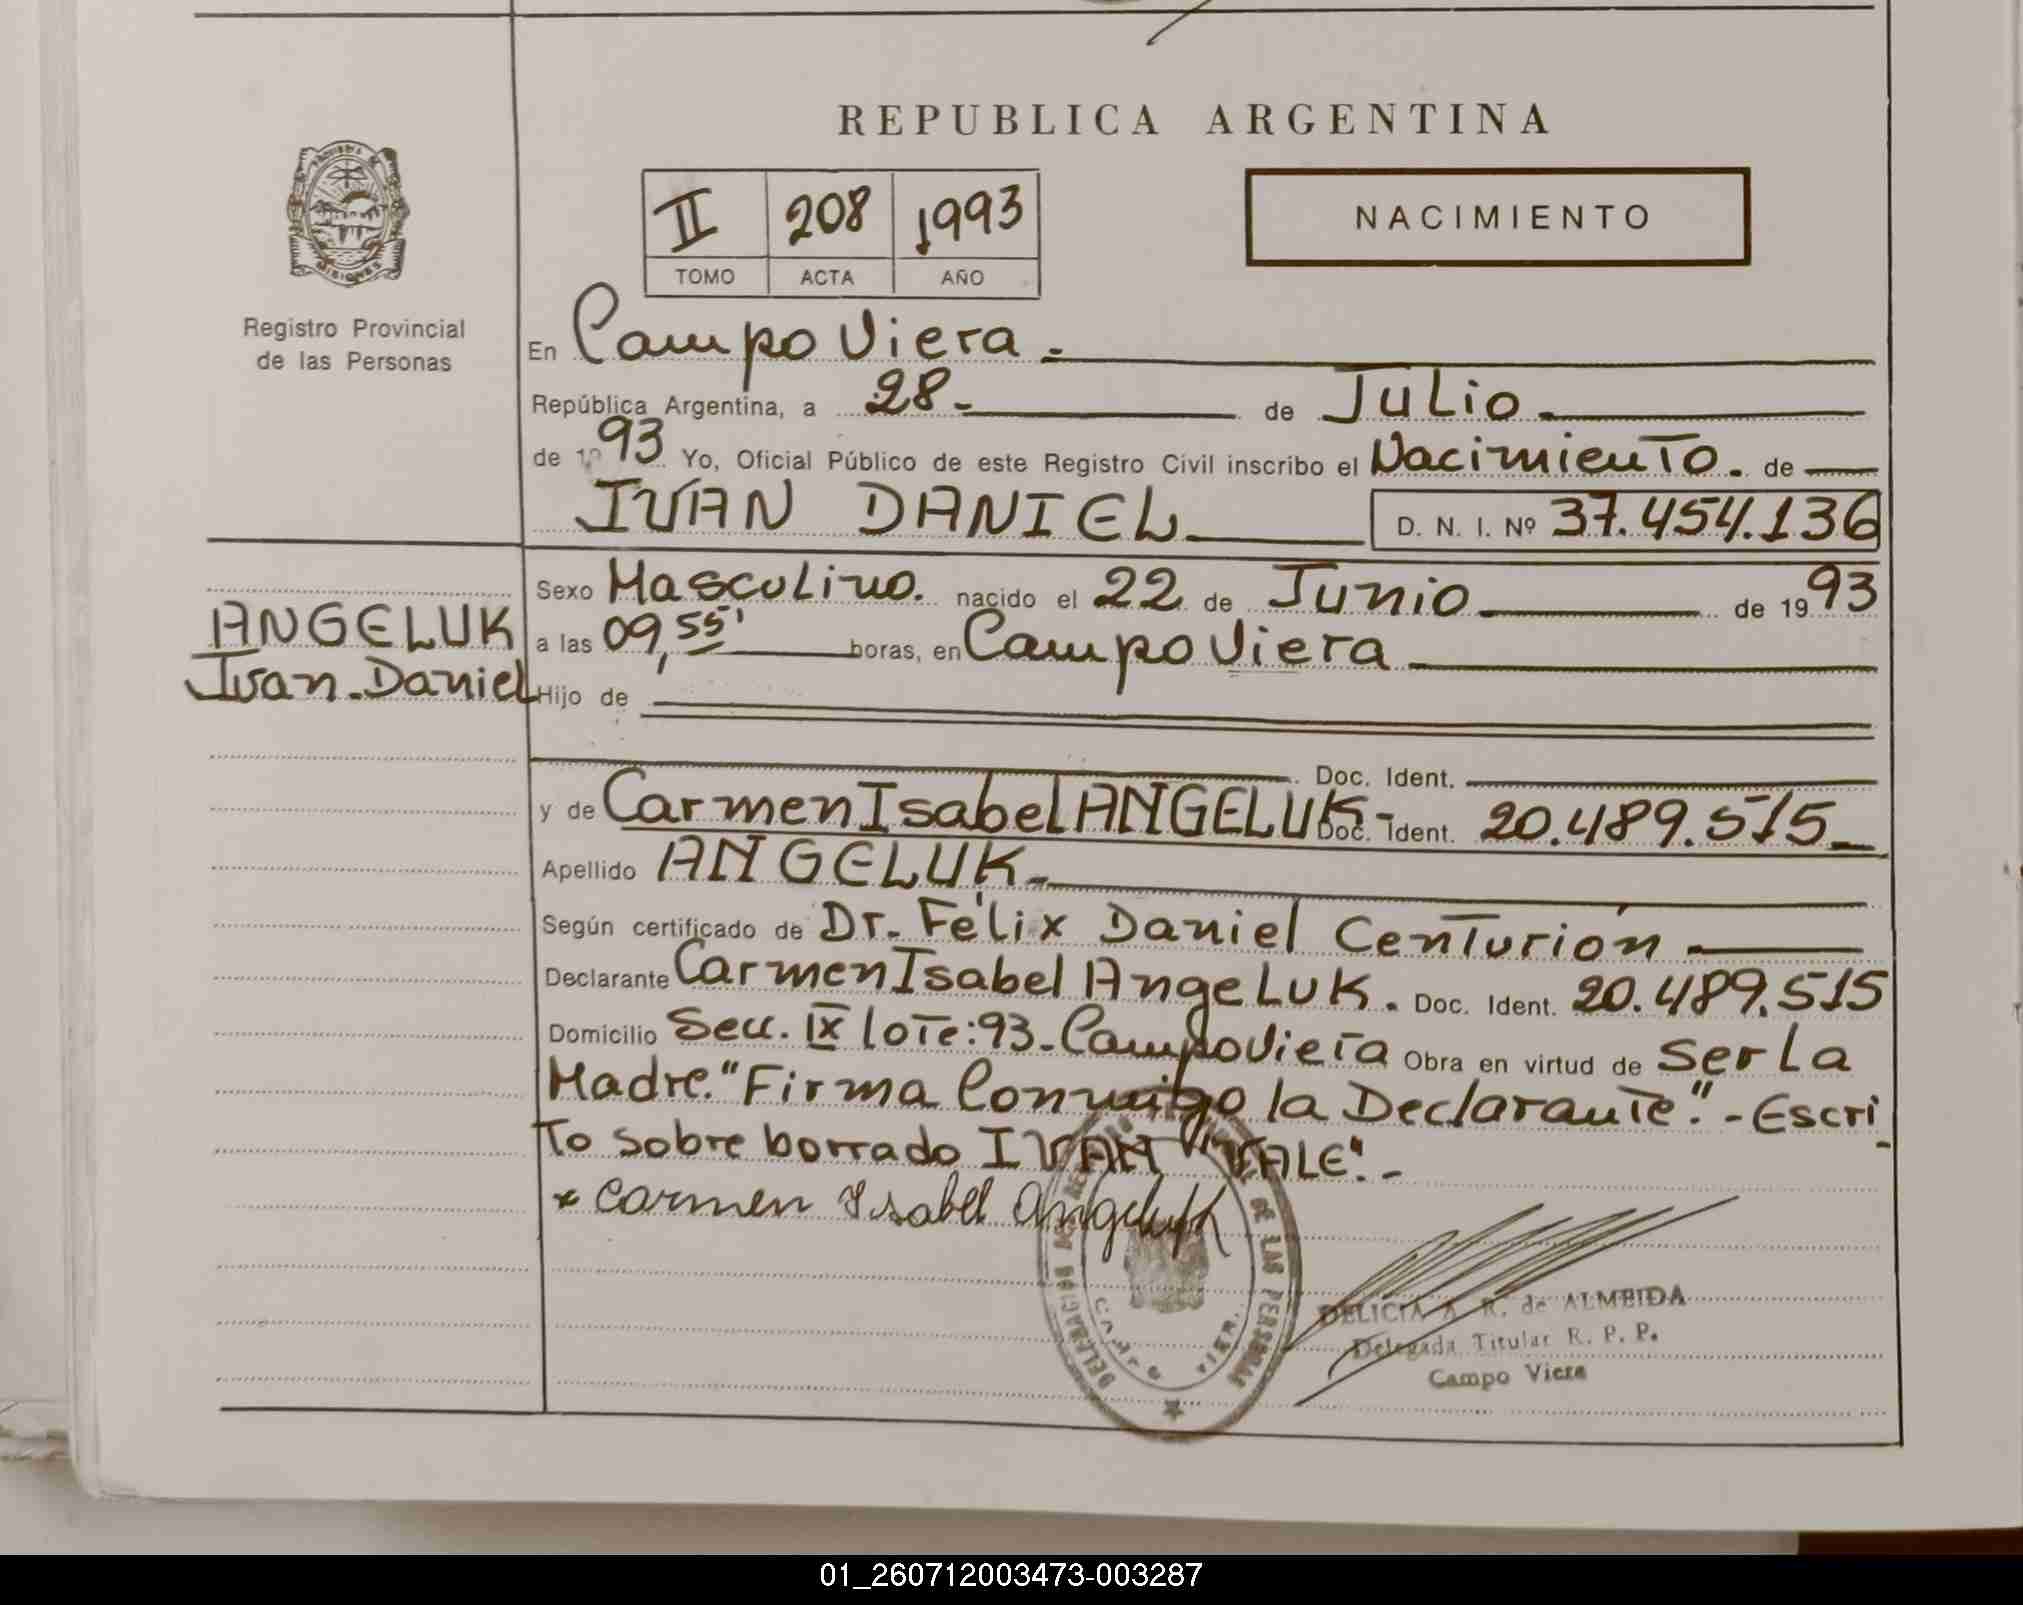 REPUBLICA ARGENTINA
II 208 1993
TOMO ACTA AÑO
NACIMIENTO
PROVINCIA DE
MISIONES
Registro Provincial
de las Personas
En Campo Viera.-
República Argentina, a 28- de Julio.-
de 1993 Yo, Oficial Público de este Registro Civil inscribo el Nacimiento. de
IVAN DANIEL D. N. I. Nº 37.454.136
ANGELUK
Ivan-Daniel
Sexo Masculino. nacido el 22 de Junio de 1993
a las 09,55' horas, en Campo Viera
Hijo de
Doc. Ident.
y de Carmen Isabel ANGELUK- Doc. Ident. 20.489.515
Apellido ANGELUK.-
Según certificado de Dr. Félix Daniel Centurión
Declarante Carmen Isabel AngeLUK. Doc. Ident. 20.489.515
Domicilio Secc. IX lote:93-Campo Viera Obra en virtud de ser La
Madre."Firma Conmigo la Declarante".-Escri-
to sobre borrado IVAN "VALE".-
x Carmen Isabel Angeluk
DE LAS PERSONAS
CAMPO VIER
DELICIA A. R. de ALMEIDA
Delegada Titular R. P. P.
Campo Viera
01_260712003473-003287